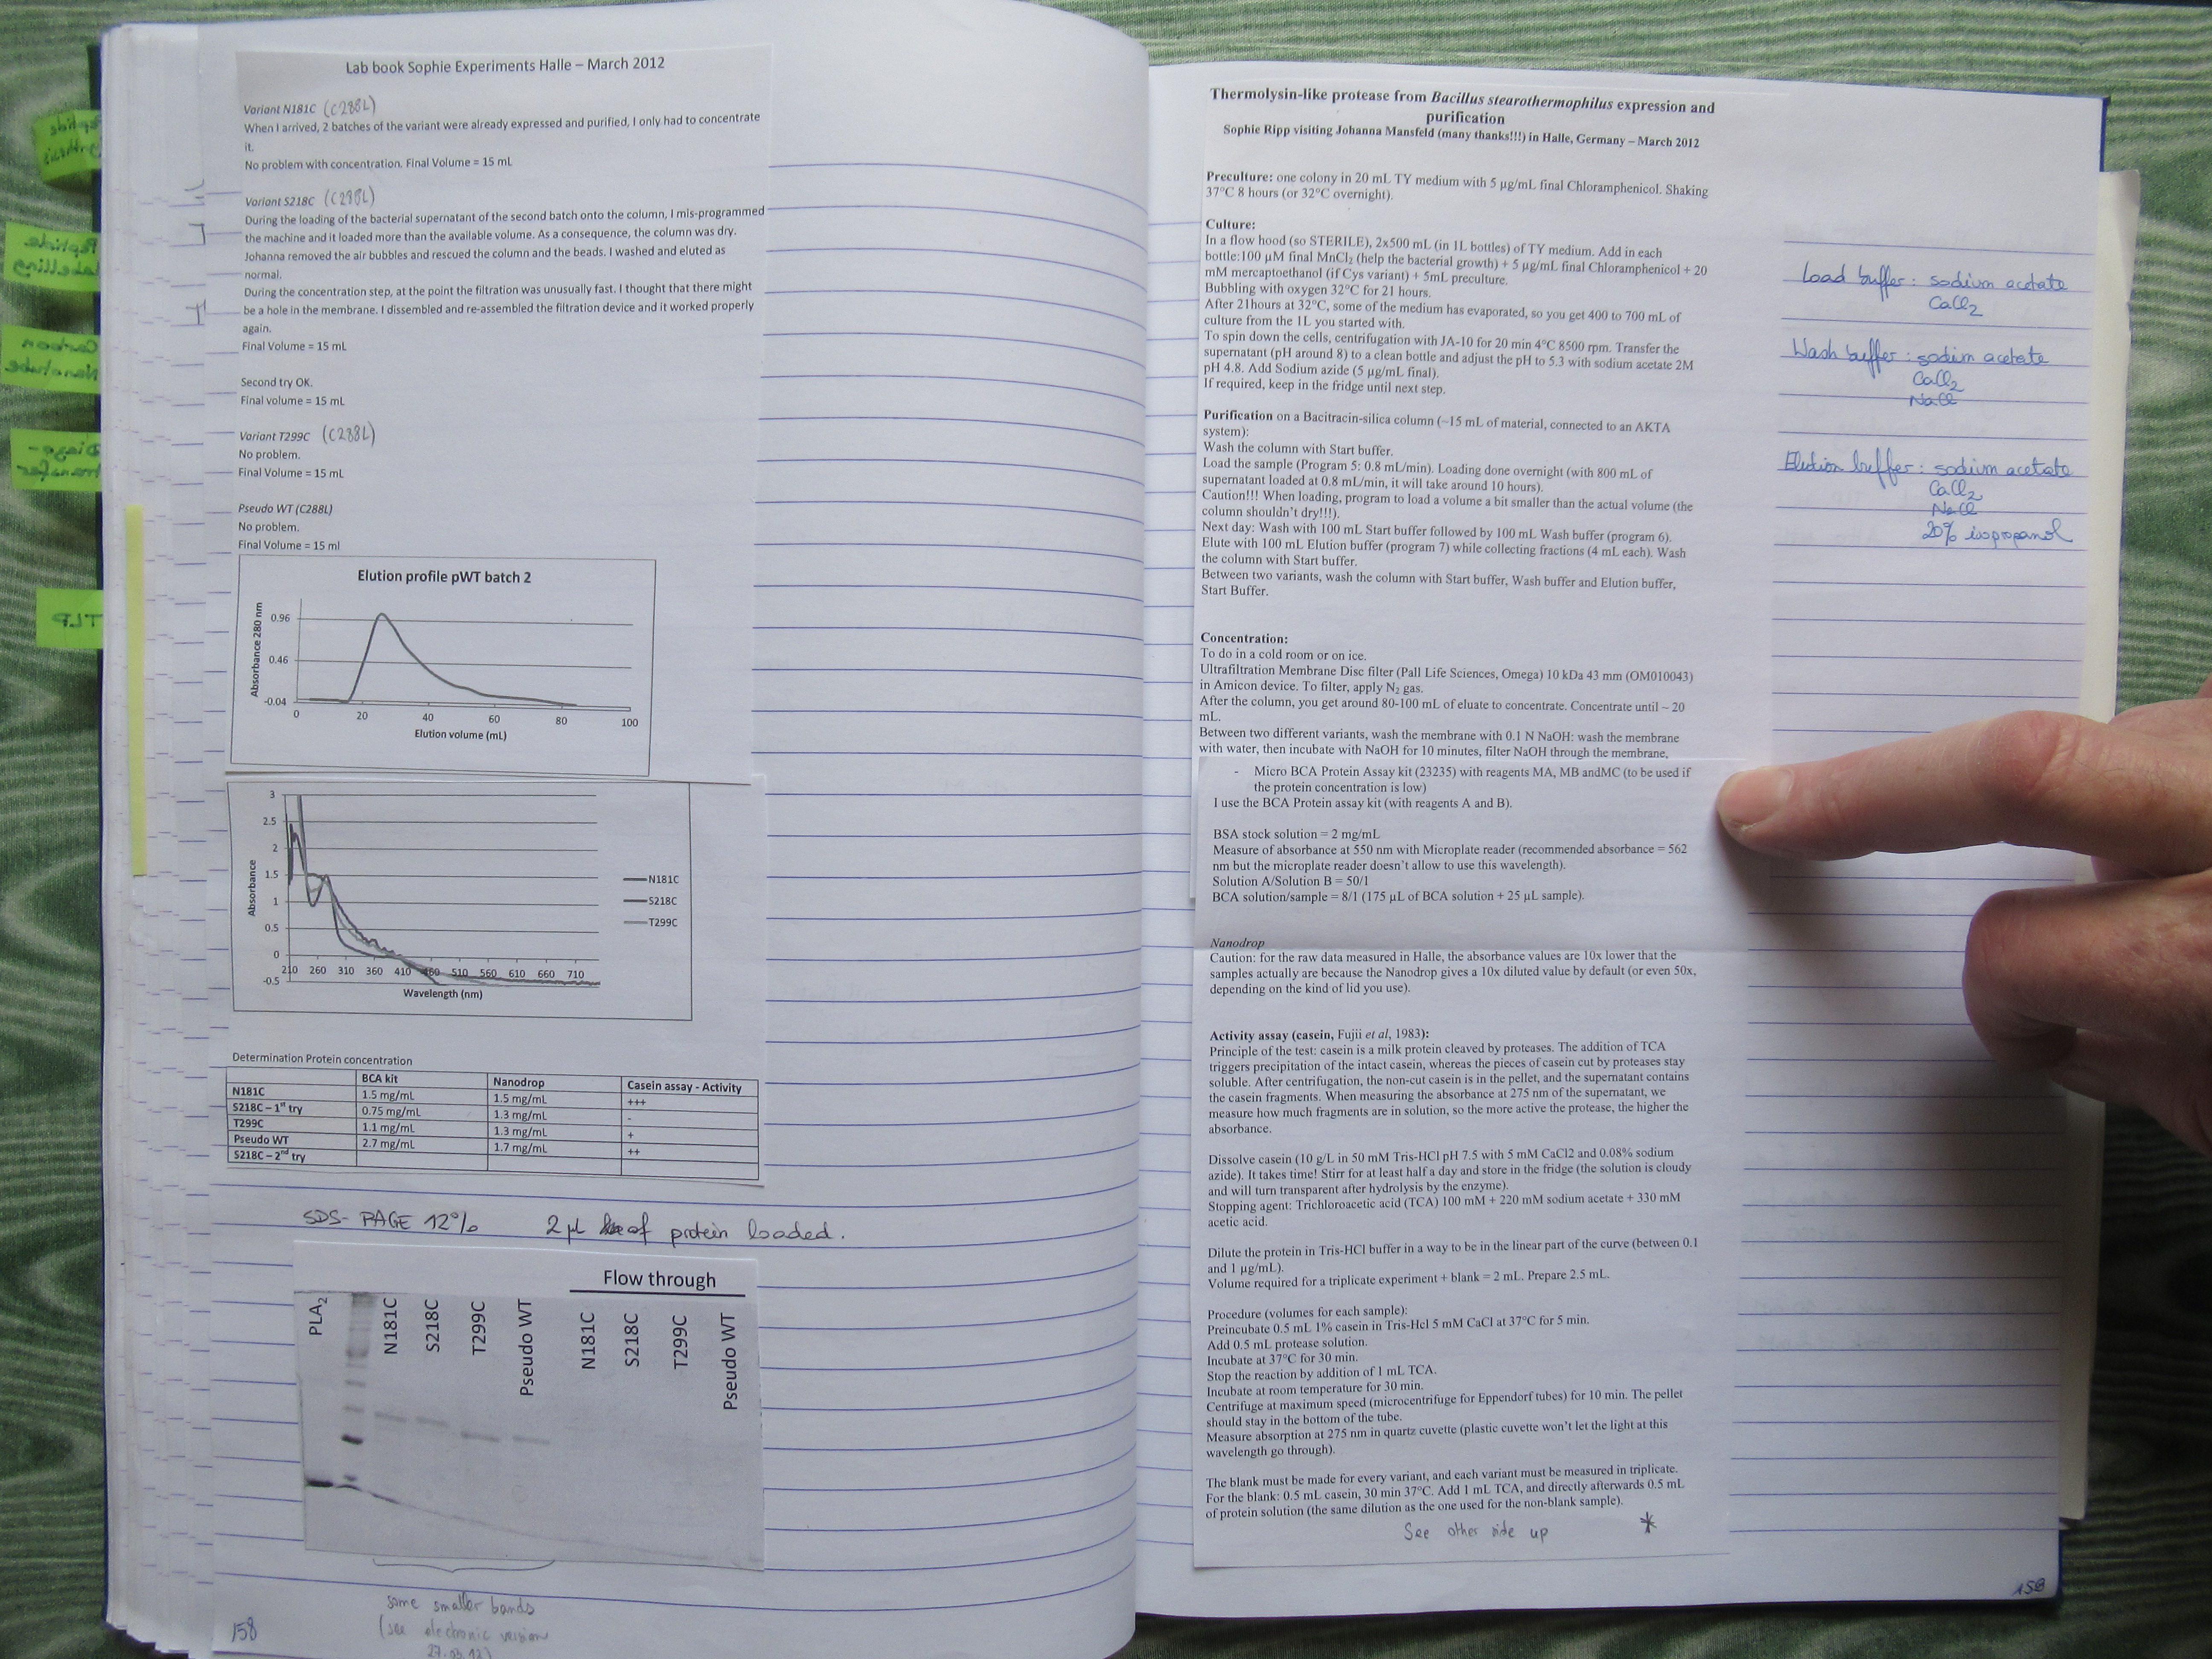 Lab book Sophie Experiments Halle – March 2012
Variant N181C (C288L)
When I arrived, 2 batches of the variant were already expressed and purified, I only had to concentrate
it.
No problem with concentration. Final Volume = 15 mL
Variant S218C (C288L)
During the loading of the bacterial supernatant of the second batch onto the column, I mis-programmed
the machine and it loaded more than the available volume. As a consequence, the column was dry.
Johanna removed the air bubbles and rescued the column and the beads. I washed and eluted as
normal.
During the concentration step, at the point the filtration was unusually fast. I thought that there might
be a hole in the membrane. I dissembled and re-assembled the filtration device and it worked properly
again.
Final Volume = 15 mL
Second try OK.
Final volume = 15 mL
Variant T299C (C288L)
No problem.
Final Volume = 15 mL
Pseudo WT (C288L)
No problem.
Final Volume = 15 ml
Elution profile pWT batch 2
Absorbance 280 nm
0.96
0.46
-0.04
0 20 40 60 80 100
Elution volume (mL)
3
2.5
2
1.5
1
0.5
0
-0.5
Absorbance
210 260 310 360 410 460 510 560 610 660 710
Wavelength (nm)
N181C
S218C
T299C
Determination Protein concentration
BCA kit Nanodrop Casein assay - Activity
N181C 1.5 mg/mL 1.5 mg/mL +++
S218C – 1st try 0.75 mg/mL 1.3 mg/mL -
T299C 1.1 mg/mL 1.3 mg/mL +
Pseudo WT 2.7 mg/mL 1.7 mg/mL ++
S218C – 2nd try
SDS-PAGE 12% 2 µL of protein loaded.
Flow through
PLA2 N181C S218C T299C Pseudo WT N181C S218C T299C Pseudo WT
some smaller bands
(see electronic version
27.03.12)
158
Peptide
synthesis
Peptide
labelling
Carbon
Nanotube
Diazo-
transfer
TLP
Thermolysin-like protease from Bacillus stearothermophilus expression and
purification
Sophie Ripp visiting Johanna Mansfeld (many thanks!!!) in Halle, Germany – March 2012
Preculture: one colony in 20 mL TY medium with 5 µg/mL final Chloramphenicol. Shaking
37°C 8 hours (or 32°C overnight).
Culture:
In a flow hood (so STERILE), 2x500 mL (in 1L bottles) of TY medium. Add in each
bottle:100 µM final MnCl2 (help the bacterial growth) + 5 µg/mL final Chloramphenicol + 20
mM mercaptoethanol (if Cys variant) + 5mL preculture.
Bubbling with oxygen 32°C for 21 hours.
After 21hours at 32°C, some of the medium has evaporated, so you get 400 to 700 mL of
culture from the 1L you started with.
To spin down the cells, centrifugation with JA-10 for 20 min 4°C 8500 rpm. Transfer the
supernatant (pH around 8) to a clean bottle and adjust the pH to 5.3 with sodium acetate 2M
pH 4.8. Add Sodium azide (5 µg/mL final).
If required, keep in the fridge until next step.
Purification on a Bacitracin-silica column (~15 mL of material, connected to an AKTA
system):
Wash the column with Start buffer.
Load the sample (Program 5: 0.8 mL/min). Loading done overnight (with 800 mL of
supernatant loaded at 0.8 mL/min, it will take around 10 hours).
Caution!!! When loading, program to load a volume a bit smaller than the actual volume (the
column shouldn't dry!!!).
Next day: Wash with 100 mL Start buffer followed by 100 mL Wash buffer (program 6).
Elute with 100 mL Elution buffer (program 7) while collecting fractions (4 mL each). Wash
the column with Start buffer.
Between two variants, wash the column with Start buffer, Wash buffer and Elution buffer,
Start Buffer.
Concentration:
To do in a cold room or on ice.
Ultrafiltration Membrane Disc filter (Pall Life Sciences, Omega) 10 kDa 43 mm (OM010043)
in Amicon device. To filter, apply N2 gas.
After the column, you get around 80-100 mL of eluate to concentrate. Concentrate until ~ 20
mL.
Between two different variants, wash the membrane with 0.1 N NaOH: wash the membrane
with water, then incubate with NaOH for 10 minutes, filter NaOH through the membrane,
- Micro BCA Protein Assay kit (23235) with reagents MA, MB andMC (to be used if
the protein concentration is low)
I use the BCA Protein assay kit (with reagents A and B).
BSA stock solution = 2 mg/mL
Measure of absorbance at 550 nm with Microplate reader (recommended absorbance = 562
nm but the microplate reader doesn't allow to use this wavelength).
Solution A/Solution B = 50/1
BCA solution/sample = 8/1 (175 µL of BCA solution + 25 µL sample).
Nanodrop
Caution: for the raw data measured in Halle, the absorbance values are 10x lower that the
samples actually are because the Nanodrop gives a 10x diluted value by default (or even 50x,
depending on the kind of lid you use).
Activity assay (casein, Fujii et al, 1983):
Principle of the test: casein is a milk protein cleaved by proteases. The addition of TCA
triggers precipitation of the intact casein, whereas the pieces of casein cut by proteases stay
soluble. After centrifugation, the non-cut casein is in the pellet, and the supernatant contains
the casein fragments. When measuring the absorbance at 275 nm of the supernatant, we
measure how much fragments are in solution, so the more active the protease, the higher the
absorbance.
Dissolve casein (10 g/L in 50 mM Tris-HCl pH 7.5 with 5 mM CaCl2 and 0.08% sodium
azide). It takes time! Stirr for at least half a day and store in the fridge (the solution is cloudy
and will turn transparent after hydrolysis by the enzyme).
Stopping agent: Trichloroacetic acid (TCA) 100 mM + 220 mM sodium acetate + 330 mM
acetic acid.
Dilute the protein in Tris-HCl buffer in a way to be in the linear part of the curve (between 0.1
and 1 µg/mL).
Volume required for a triplicate experiment + blank = 2 mL. Prepare 2.5 mL.
Procedure (volumes for each sample):
Preincubate 0.5 mL 1% casein in Tris-Hcl 5 mM CaCl at 37°C for 5 min.
Add 0.5 mL protease solution.
Incubate at 37°C for 30 min.
Stop the reaction by addition of 1 mL TCA.
Incubate at room temperature for 30 min.
Centrifuge at maximum speed (microcentrifuge for Eppendorf tubes) for 10 min. The pellet
should stay in the bottom of the tube.
Measure absorption at 275 nm in quartz cuvette (plastic cuvette won't let the light at this
wavelength go through).
The blank must be made for every variant, and each variant must be measured in triplicate.
For the blank: 0.5 mL casein, 30 min 37°C. Add 1 mL TCA, and directly afterwards 0.5 mL
of protein solution (the same dilution as the one used for the non-blank sample).
See other side up *
Load buffer : sodium acetate
CaCl2
Wash buffer : sodium acetate
CaCl2
NaCl
Elution buffer : sodium acetate
CaCl2
NaCl
20% isopropanol
159